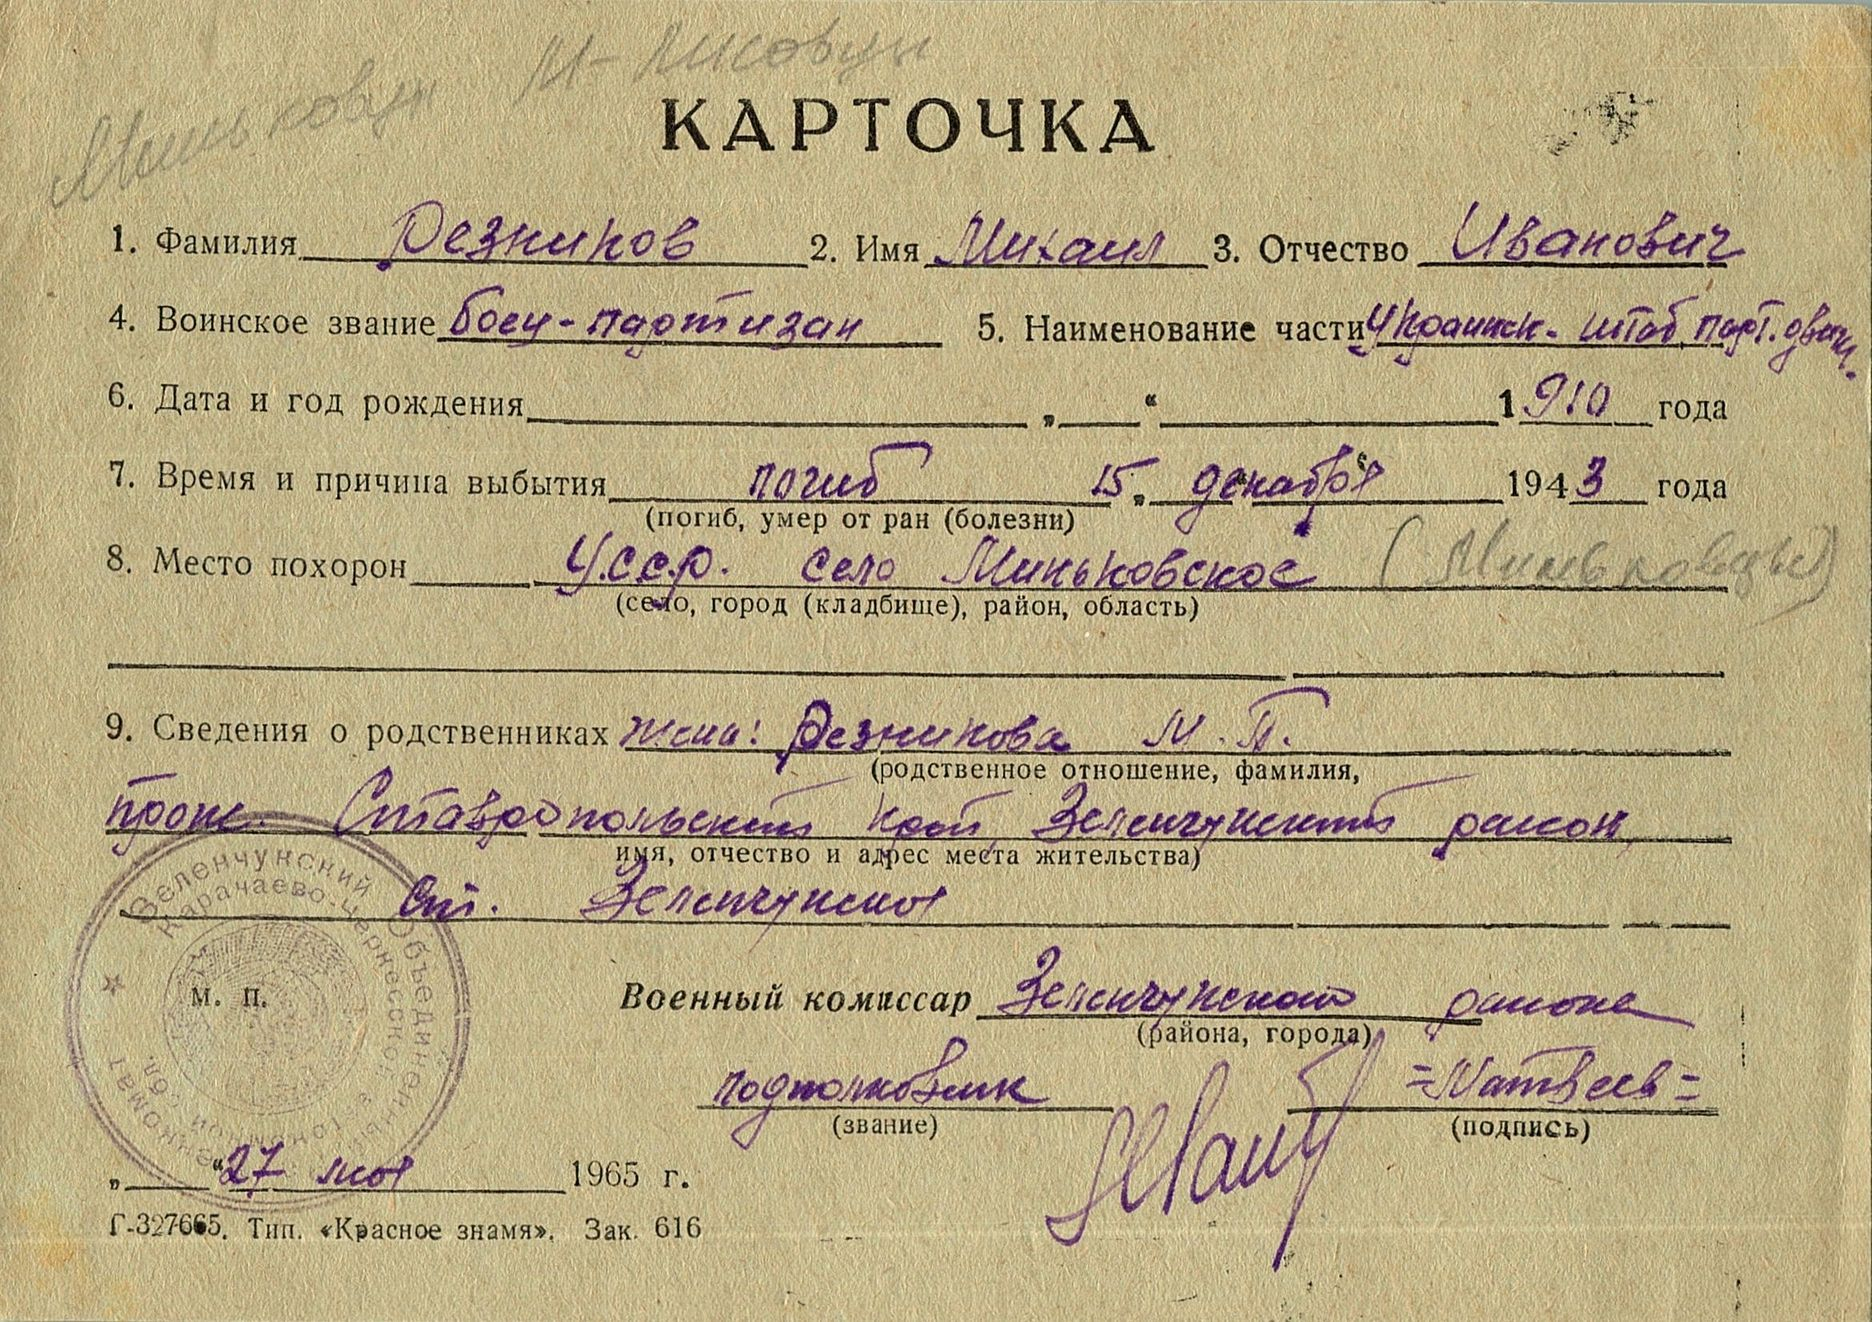 Миньковцы М-Писовцы
КАРТОЧКА
1. Фамилия Резников 2. Имя Михаил 3. Отчество Иванович
4. Воинское звание боец-партизан 5. Наименование части Украинск. штаб парт. движ.
6. Дата и год рождения „ “ 1910 года
7. Время и причина выбытия погиб 15 „ декабря 1943 года
(погиб, умер от ран (болезни)
8. Место похорон У.С.С.Р. село Миньковское (Миньковцы)
(село, город (кладбище), район, область)
9. Сведения о родственниках жена: Резникова М. П.
(родственное отношение, фамилия,
прож. Ставропольский край Зеленчукский район,
имя, отчество и адрес места жительства)
ст. Зеленчукская
Зеленчукский Объединенный Военкомат
Карачаево-Черкесской автономной обл.
м. п.
Военный комиссар Зеленчукского района
(района, города)
подполковник =Матвеев=
(звание) (подпись)
„ “ 27 мая 1965 г.
Г-327665. Тип. «Красное знамя». Зак. 616